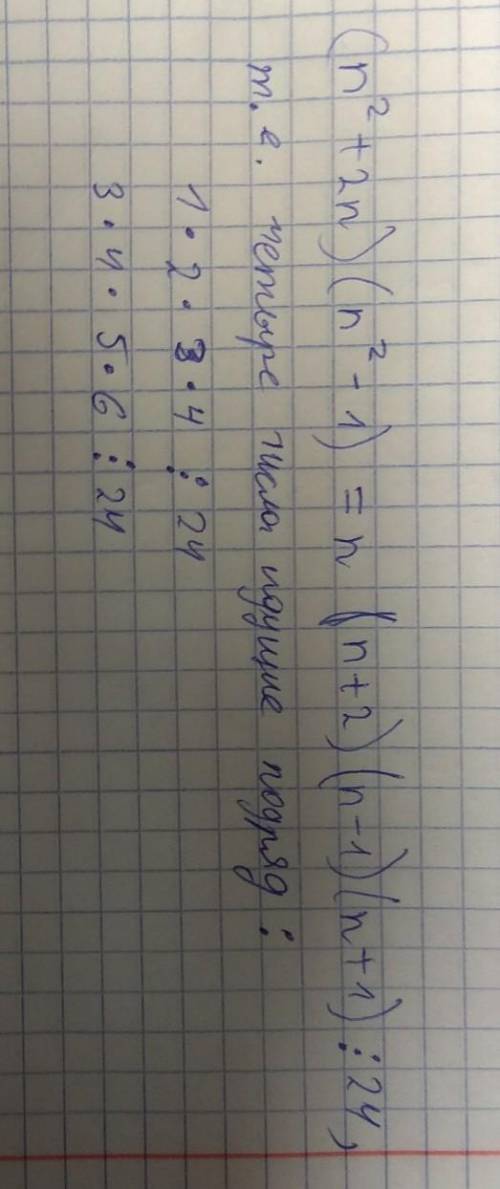 (n² + 2n)(n² - 1) = n (n+2)(n-1)(n+1) ⋮ 24,
т.е. четыре числа идущие подряд :
1 · 2 · 3 · 4 ⋮ 24
3 · 4 · 5 · 6 ⋮ 24